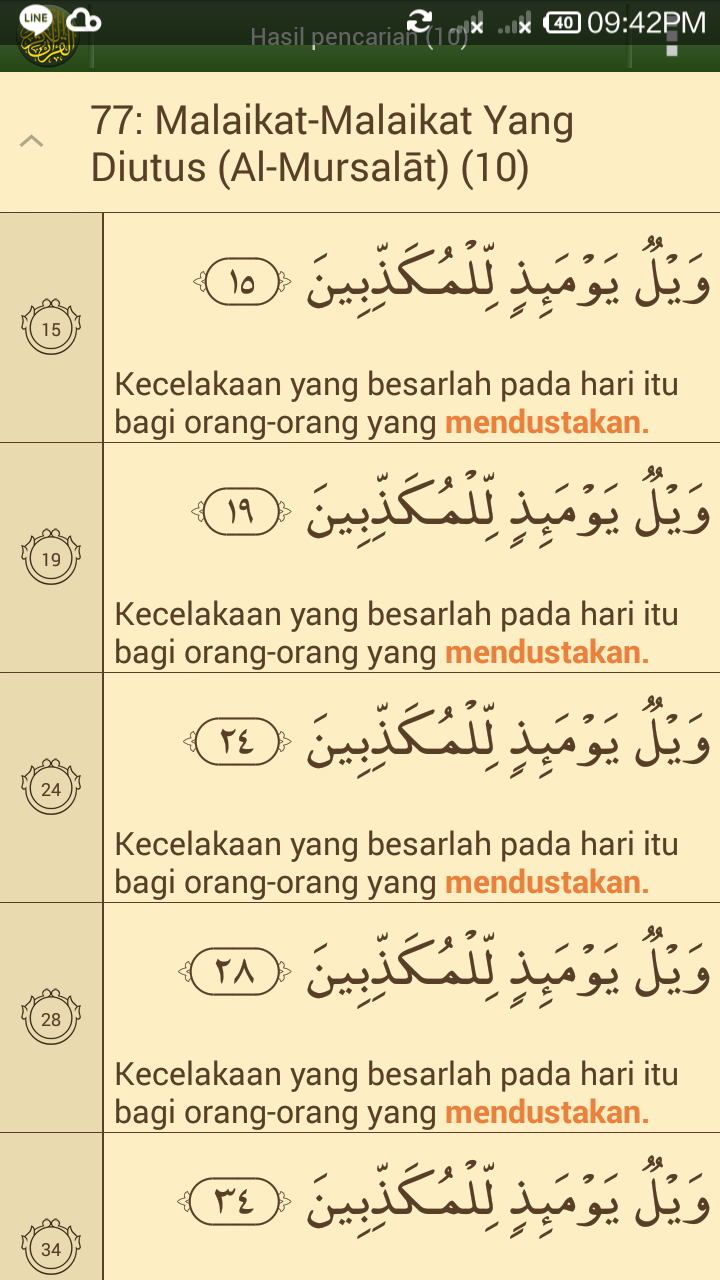 LINE
40 09:42PM
Hasil pencarian (10)
77: Malaikat-Malaikat Yang
Diutus (Al-Mursalāt) (10)
15
وَيْلٌ يَوْمَئِذٍ لِّلْمُكَذِّبِينَ ١٥
Kecelakaan yang besarlah pada hari itu
bagi orang-orang yang mendustakan.
19
وَيْلٌ يَوْمَئِذٍ لِّلْمُكَذِّبِينَ ١٩
Kecelakaan yang besarlah pada hari itu
bagi orang-orang yang mendustakan.
24
وَيْلٌ يَوْمَئِذٍ لِّلْمُكَذِّبِينَ ٢٤
Kecelakaan yang besarlah pada hari itu
bagi orang-orang yang mendustakan.
28
وَيْلٌ يَوْمَئِذٍ لِّلْمُكَذِّبِينَ ٢٨
Kecelakaan yang besarlah pada hari itu
bagi orang-orang yang mendustakan.
34
وَيْلٌ يَوْمَئِذٍ لِّلْمُكَذِّبِينَ ٣٤